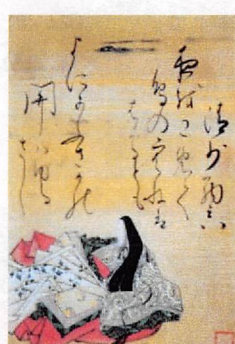 清少納言
夜越こめて
鳥の空ねハ
はかるとも
よにあふさかの
関ハゆる
さし